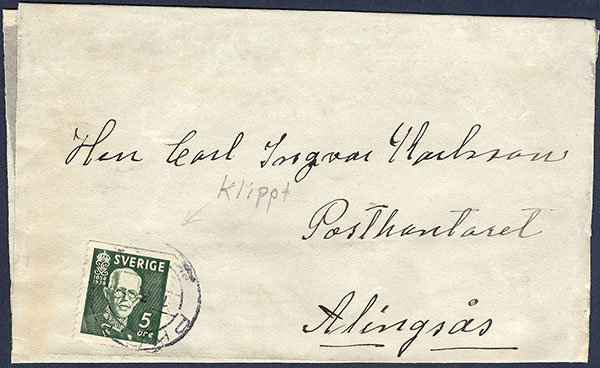 Herr Carl Ingvar Karlsson
Klippt
Postkontoret
SVERIGE
1858
1938
5
öre
Alingsås